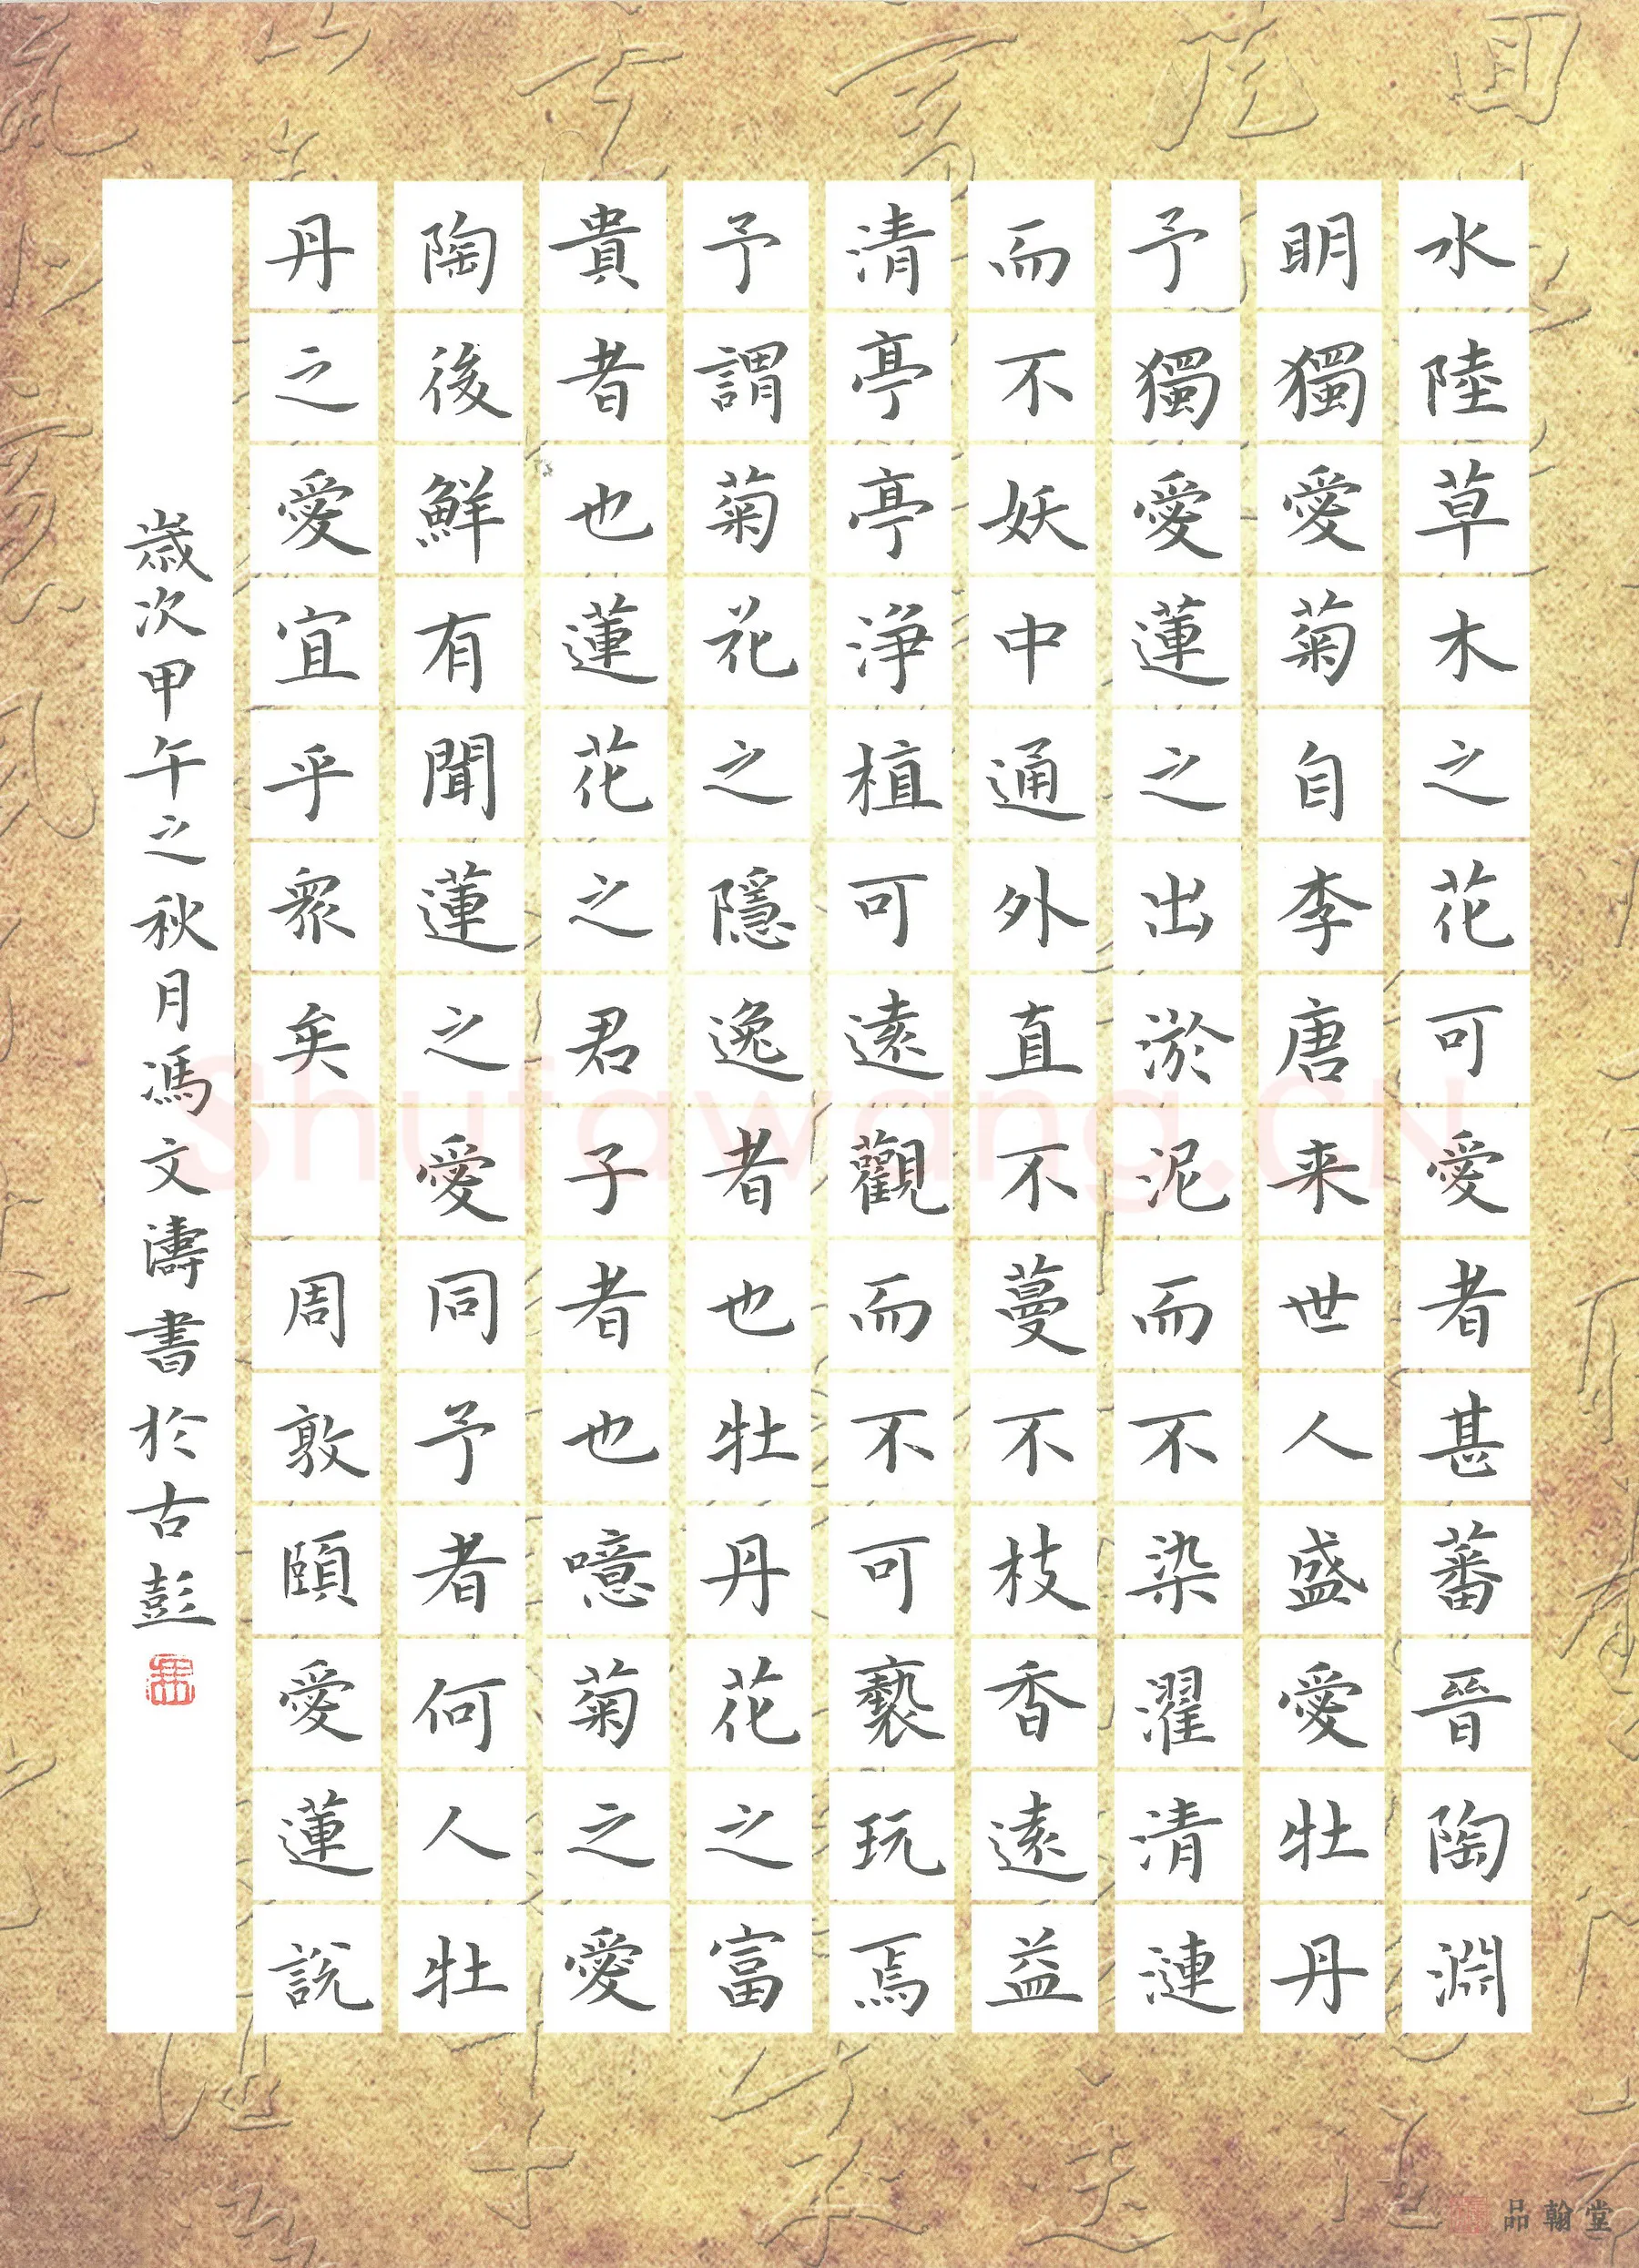 水陸草木之花可愛者甚蕃晉陶淵
明獨愛菊自李唐来世人盛愛牡丹
予獨愛蓮之出淤泥而不染濯清漣
而不妖中通外直不蔓不枝香遠益
清亭亭淨植可遠觀而不可褻玩焉
予謂菊花之隱逸者也牡丹花之富
貴者也蓮花之君子者也噫菊之愛
陶後鮮有聞蓮之愛同予者何人牡
丹之愛宜乎眾矣 周敦頤愛蓮說
歲次甲午之秋月馮文濤書於古彭
Shufawang.CN
品翰堂